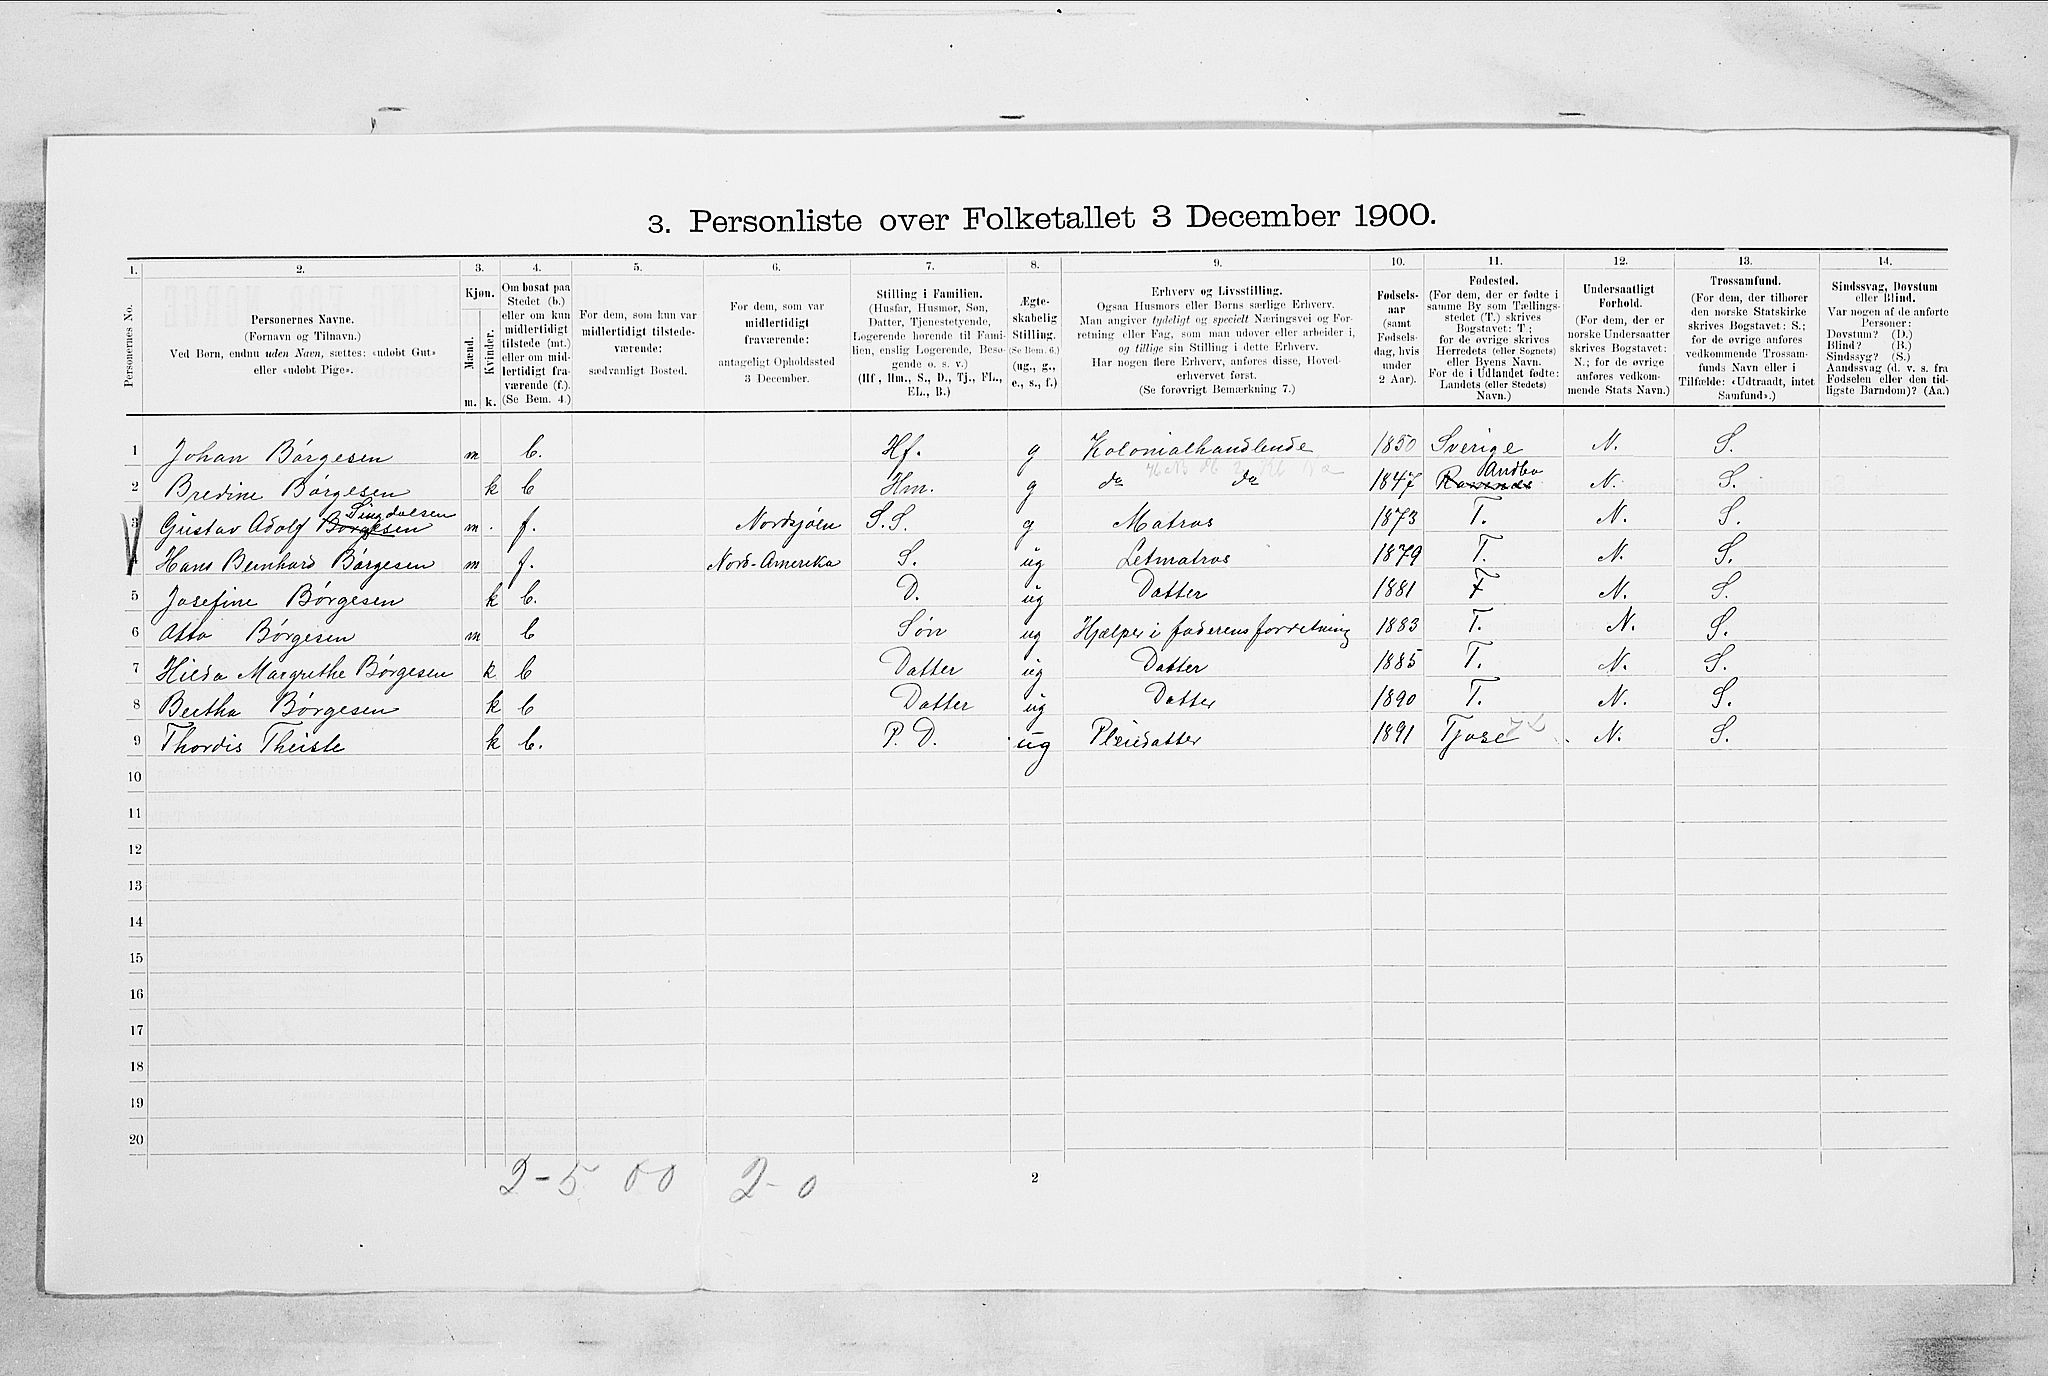 3. Personliste over Folketallet 3 December 1900.
1. 2. 3. 4. 5. 6. 7. 8. 9. 10. 11. 12. 13. 14.
Personernes No.
Personernes Navne.
(Fornavn og Tilnavn.)
Ved Børn, endnu uden Navn, sættes: «udøbt Gut»
eller «udøbt Pige».
Kjøn.
Mænd.
Kvinder.
m. k.
Om bosat paa
Stedet (b.)
eller om kun
midlertidigt
tilstede (mt.)
eller om mid-
lertidigt fra-
værende (f.).
(Se Bem. 4.)
For dem, som kun var
midlertidigt tilstede-
værende:
sædvanligt Bosted.
For dem, som var
midlertidigt
fraværende:
antageligt Opholdssted
3 December.
Stilling i Familien.
(Husfar, Husmor, Søn,
Datter, Tjenestetyende,
Logerende hørende til Fami-
lien, enslig Logerende, Besø-
gende o. s. v.)
(Hf., Hm., S., D., Tj., FL.,
EL., B.)
Ægte-
skabelig
Stilling.
(Se Bem. 6.)
(ug., g.,
e., s., f.)
Erhverv og Livsstilling.
Ogsaa Husmors eller Børns særlige Erhverv.
Man angiver tydeligt og specielt Næringsvei og For-
retning eller Fag, som man udøver eller arbeider i,
og tillige sin Stilling i dette Erhverv.
Har nogen flere Erhverv, anføres disse, Hoved-
erhvervet først.
(Se forøvrigt Bemærkning 7.)
Fødsels-
aar
(samt
Fødsels-
dag, hvis
under
2 Aar).
Fødested.
(For dem, der er fødte i
samme By som Tællings-
stedet (T.) skrives
Bogstavet: T.;
for de øvrige skrives
Herredets (eller Sognets)
eller Byens Navn.
For de i Udlandet fødte:
Landets (eller Stedets)
Navn.)
Undersaatligt
Forhold.
(For dem, der er
norske Undersaatter
skrives Bogstavet:
N.; for de øvrige
anføres vedkom-
mende Stats Navn.)
Trossamfund.
(For dem, der tilhører
den norske Statskirke
skrives Bogstavet: S.;
for de øvrige anføres
vedkommende Trossam-
funds Navn eller i
Tilfælde: «Udtraadt, intet
Samfund».)
Sindssvag, Døvstum
eller Blind.
Var nogen af de anførte
Personer:
Døvstum? (D.)
Blind? (B.)
Sindssyg? (S.)
Aandssvag (d. v. s. fra
Fødselen eller den tid-
ligste Barndom)? (Aa.)
1 Johan Børgesen m b. Hf. g Kolonialhandlende 1850 Sverige N. S.
2 Bredine Børgesen k b Hm. g do do 1847 Ramnes Andbo N. S.
3 Gustav Adolf Børgesen Lingdalsen m. f. Nordsjøen S.S. g Matros 1873 T. N. S.
4 Hans Bernhard Børgesen m f. Nord-Amerika S. ug Letmatros 1879 T. N. S.
5 Josefine Børgesen k b. D. ug Datter 1881 T N. S.
6 Otto Børgesen m b Søn ug Hjælper i faderens forretning 1883 T. N. S.
7 Hilda Margrethe Børgesen k b Datter ug Datter 1885 T. N. S.
8 Bertha Børgesen k b Datter ug Datter 1890 T. N. S.
9 Thordis Theiste k b. P. D. ug Pleiedatter 1891 Tjose N. S.
10
11
12
13
14
15
16
17
18
19
20
2-5 00 2-0
2